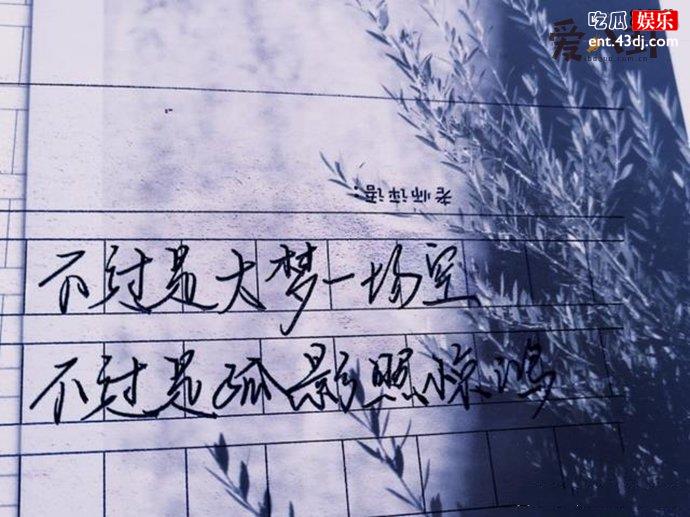 吃瓜 娱乐
ent.43dj.com
老师评语：
不过是大梦一场空
不过是孤影照惊鸿